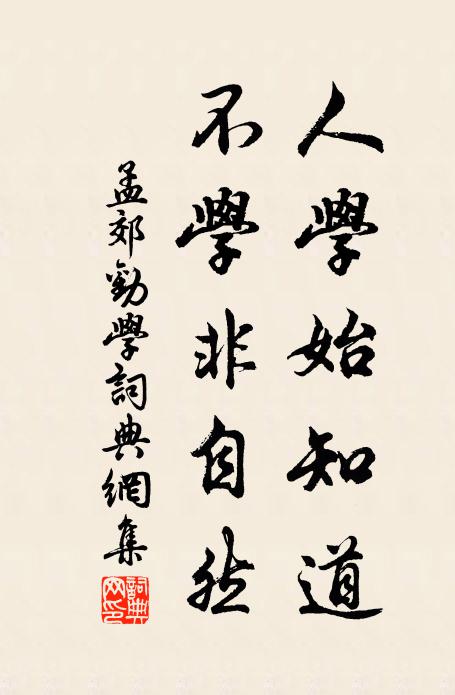 人學始知道
不學非自然
孟郊勸學詞典網集
詞典网印